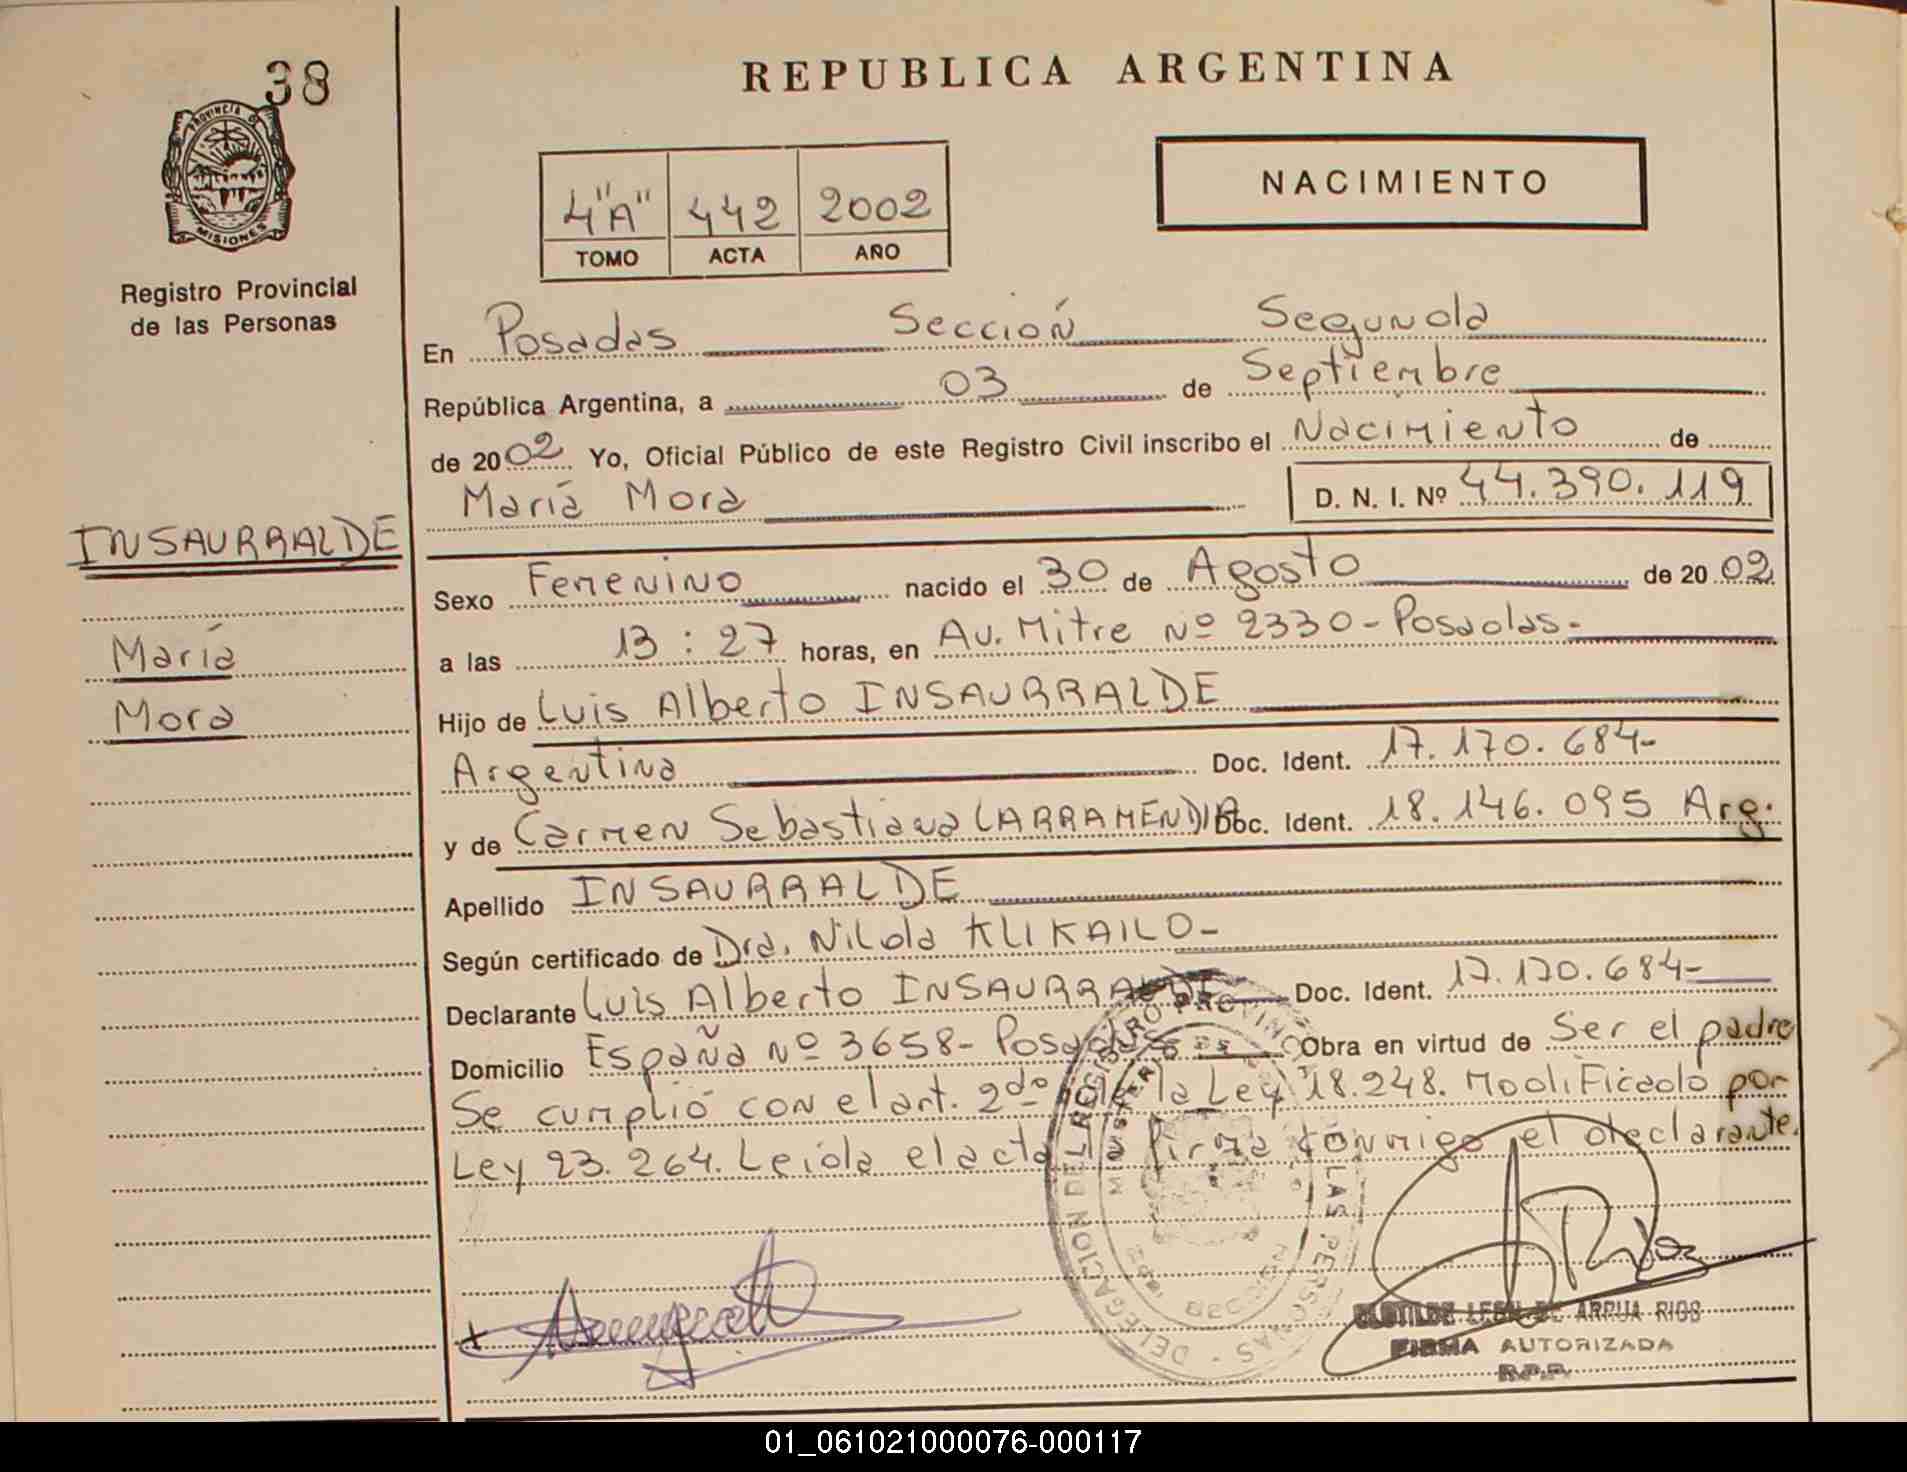 38
REPUBLICA ARGENTINA
PROVINCIA DE
MISIONES
Registro Provincial
de las Personas
4"A" 442 2002
TOMO ACTA AÑO
NACIMIENTO
En Posadas Sección Segunda
República Argentina, a 03 de Septiembre
de 2002 Yo, Oficial Público de este Registro Civil inscribo el Nacimiento de
María Mora D. N. I. Nº 44.390.119
INSAURRALDE
María
Mora
Sexo Femenino nacido el 30 de Agosto de 2002
a las 13:27 horas, en Av. Mitre Nº 2330 - Posadas.
Hijo de Luis Alberto INSAURRALDE
Argentina Doc. Ident. 17.170.684-
y de Carmen Sebastiana LARRAMENDIA Doc. Ident. 18.146.095 Arg.
Apellido INSAURRALDE
Según certificado de Dra. Nilda KLIKAILO-
Declarante Luis Alberto INSAURRALDE Doc. Ident. 17.170.684-
Domicilio España Nº 3658- Posadas Obra en virtud de Ser el padre
Se cumplió con el art. 2do de la Ley 18.248. Modificado por
Ley 23.264. Leída el acta la firma conmigo el declarante.
DELEGACION DEL REGISTRO PROVINCIAL DE LAS PERSONAS
CLOTILDE LEON DE ARRUA RIOS
FIRMA AUTORIZADA
R.P.P.
01_061021000076-000117